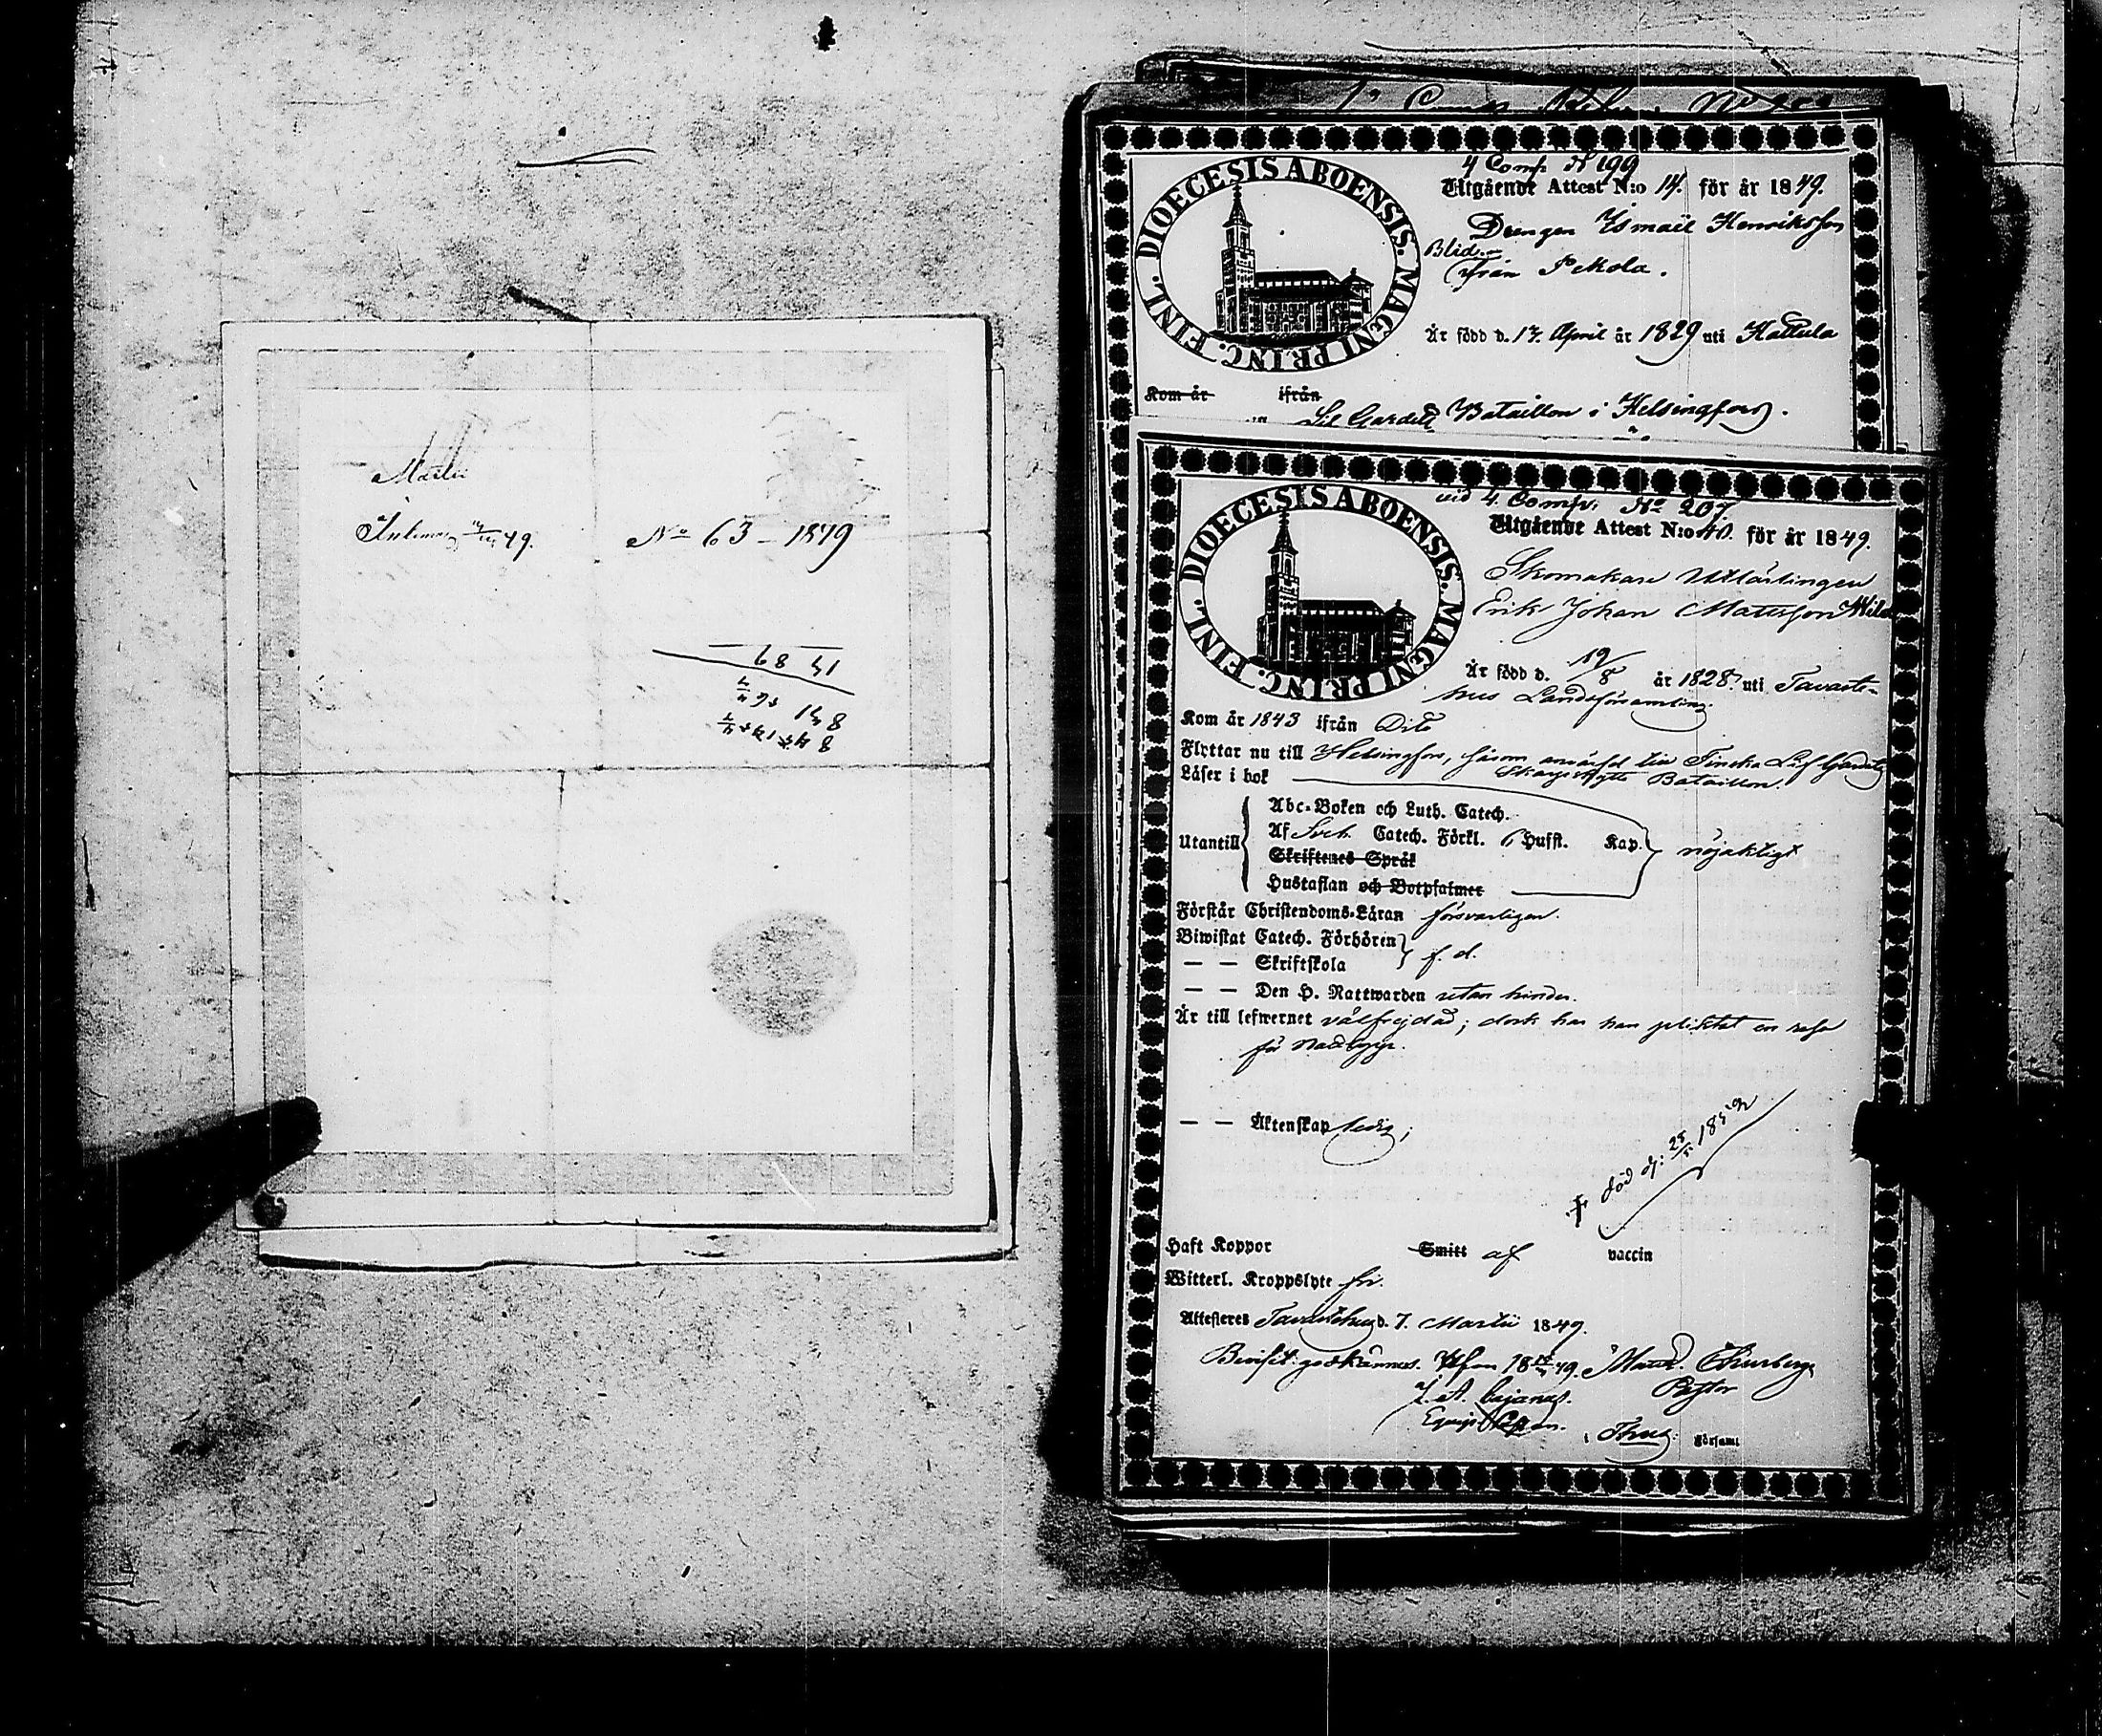 Martii
49.
No 63 – 1879
4 Comp. N 199
DIOECESIS ABOENSIS. MAGNI PRINC. FINL.
Utgående Attest N:o 14. för år 1849.
Drengen Ismail Henriksson
Blid
från Pekola.
Är född d. 17. April år 1829 uti Hattula
Kom år ifrån
Gardets Bataillon i Helsingfors.
vid 4. Comp. No 207.
DIOECESIS ABOENSIS. MAGNI PRINC. FINL.
Utgående Attest N:o 40. för år 1849.
Skomakare Utlärlingen
Erik Johan Mattsson
Är född d. 19/8 år 1828. uti Tavaste-
hus Landsförsamling.
Kom år 1843 ifrån Dito
Flyttar nu till Helsingfors, såsom till Finska Lif Gardets
Skarpskytte Bataillon.
Läser i bok
Abc-Boken och Luth. Catech.
Utantill Af Sveb. Catech. Förkl. 6 Hufst. Kap. nöjaktigt
Skriftenes Språk
Hustaflan och Botpsalmer
Förstår Christendoms-Läran försvarligen.
Biwistat Catech. Förhören
— — Skriftskola f. d.
— — Den H. Nattwarden utan hinder.
Är till lefwernet välfrejdad; dock har han pliktat en resa
för
— — Äktenskap ledig;
† död d: 25/5 185
Haft Koppor Smitt af vaccin
Witterl. Kroppslyte fri.
Attesteras Tavastehus d. 7. Martii 1849.
Bevisit: godkännes. Hfors 18 49.
Pastor
J. A. Cajanus.
i Församl